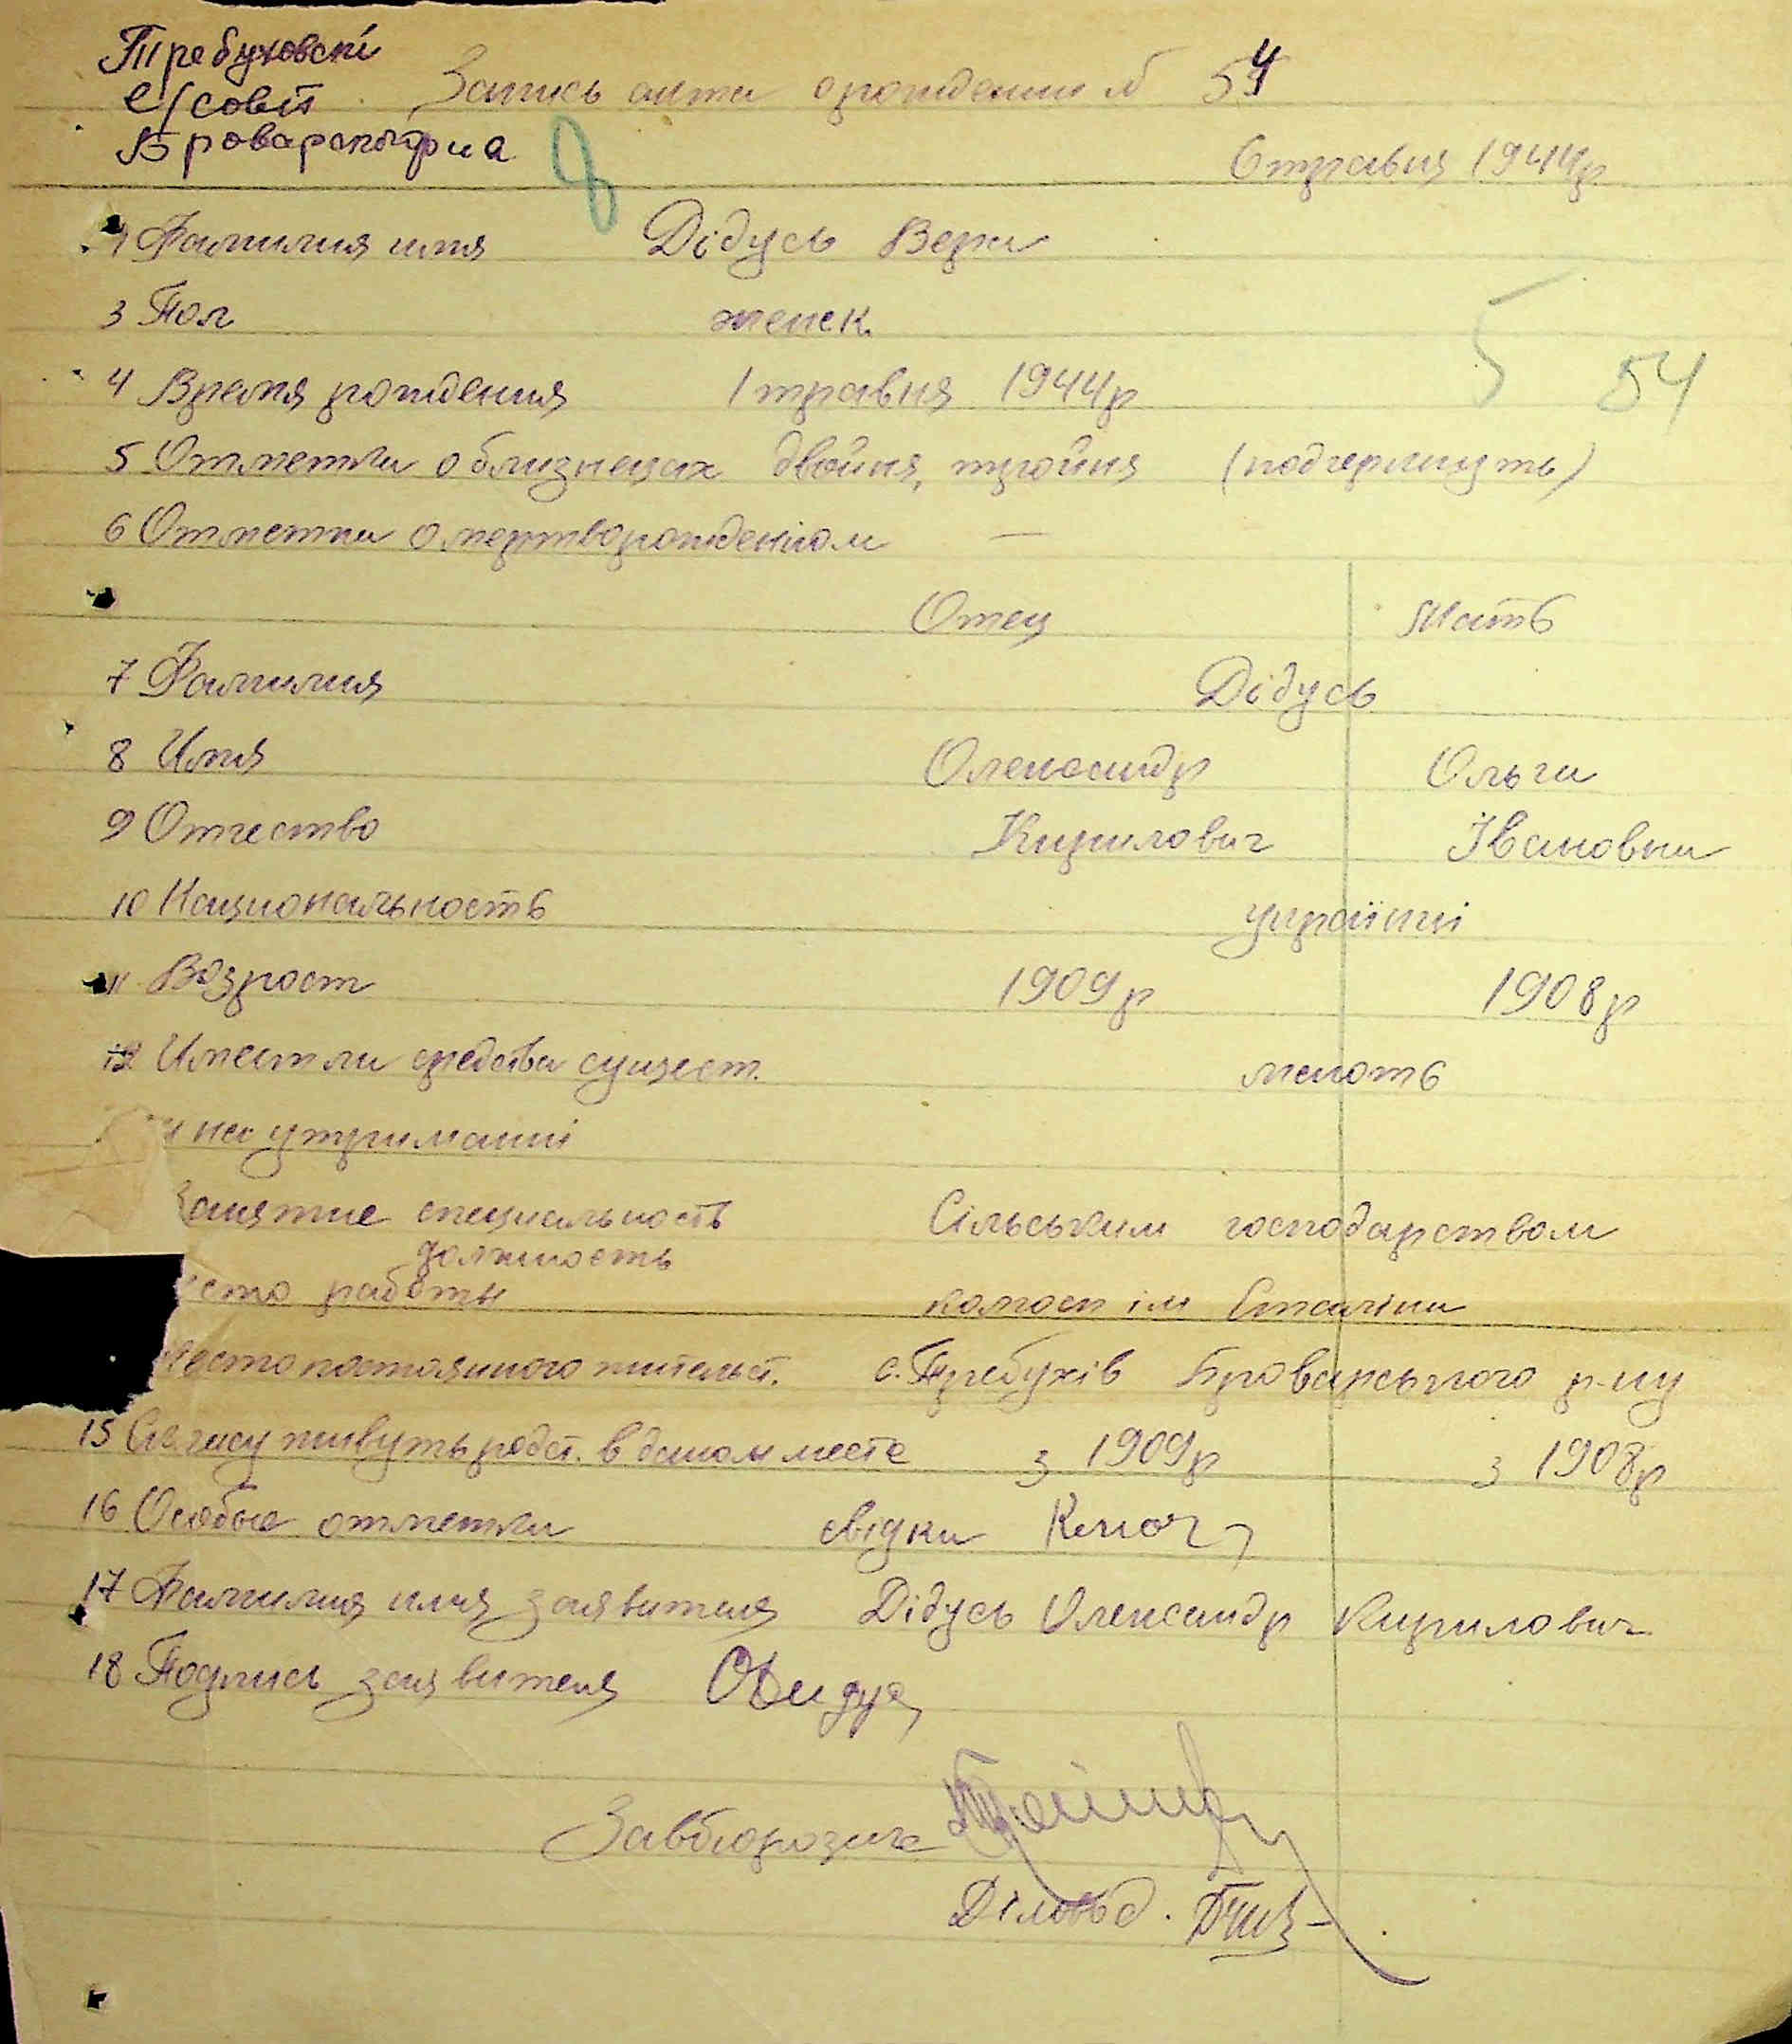 Требуховскі
с/совіт
Броварского р-на
Запись акта о рождении № 54
6 травня 1944р
8
1 Фамилия имя Дідусь Вера
3 Пол женск.
4 Время рождения 1 травня 1944р
5 54
5 Отметки о близнецах двойня, тройня (подчеркнуть)
6 Отметки о мертворожденіом —
Отец Мать
7 Фамилия Дідусь
8 Имя Олександр Ольга
9 Отчество Кирилович Івановна
10 Национальность українці
11 Возрост 1909р 1908р
12 Имеет ли средства сущест. мають
на утриманні
Занятие специальность Сільським господарством
должность
есто работы колгосп ім Сталіна
Место постоянного жительст. с. Требухів Броварського р-ну
15 С як. часу живуть родит. в даном месте з 1909р з 1908р
16 Особые отметки свідки
17 Фамилия имя заявителя Дідусь Олександр Кирилович
18 Подпись заявителя
Завбюрозагс
Діловод.